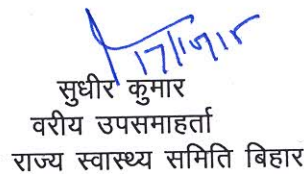 सुधीर कुमार
वरीय उपसमाहर्ता
राज्य स्वास्थ्य समिति बिहार